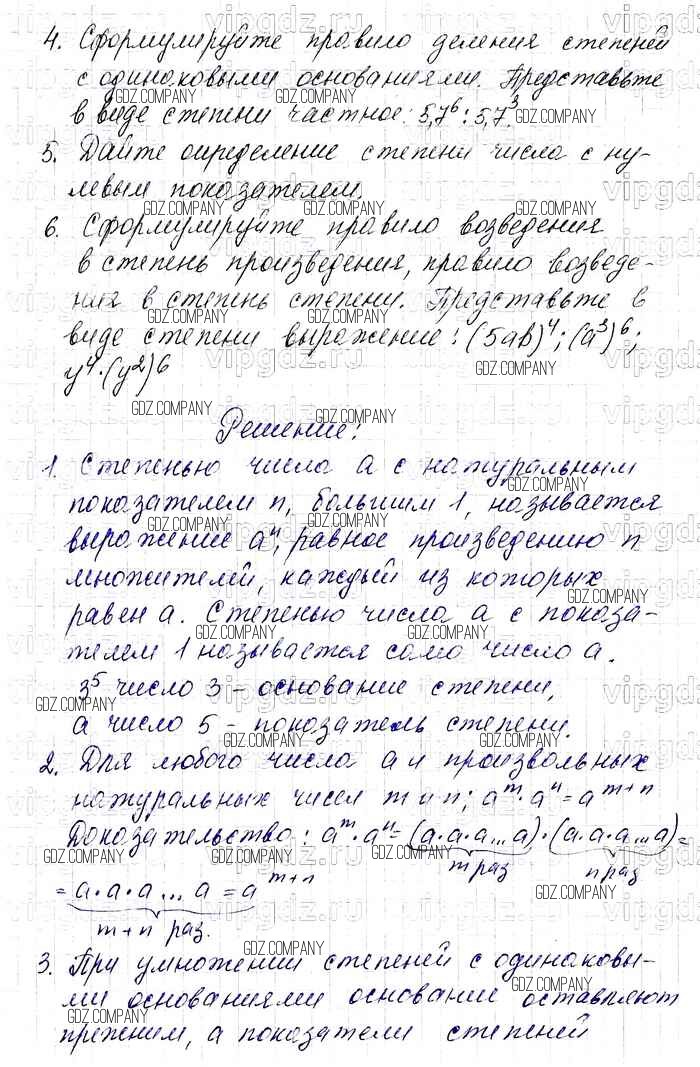 4. Сформулируйте правило деления степеней
с одинаковыми основаниями. Представьте
в виде степени частное: 5,7⁶ : 5,7³.
5. Дайте определение степени числа с ну-
левым показателем.
6. Сформулируйте правило возведения
в степень произведения, правило возведе-
ния в степень степени. Представьте в
виде степени выражение: (5ab)⁴; (a³)⁶;
y⁴·(y²)⁶
Решение:
1. Степенью числа a с натуральным
показателем n, большим 1, называется
выражение aⁿ, равное произведению n
множителей, каждый из которых
равен a. Степенью числа a с показа-
телем 1 называется само число a.
3⁵ число 3 - основание степени,
а число 5 - показатель степени.
2. Для любого числа a и произвольных
натуральных чисел m и n; aᵐ·aⁿ = aᵐ⁺ⁿ
Доказательство: aᵐ·aⁿ = (a·a·a...a)·(a·a·a...a) =
m раз n раз
= a·a·a...a = aᵐ⁺ⁿ
m+n раз.
3. При умножении степеней с одинаковы-
ми основаниями основание оставляют
прежним, а показатели степеней
vipgdz.ru
GDZ.COMPANY